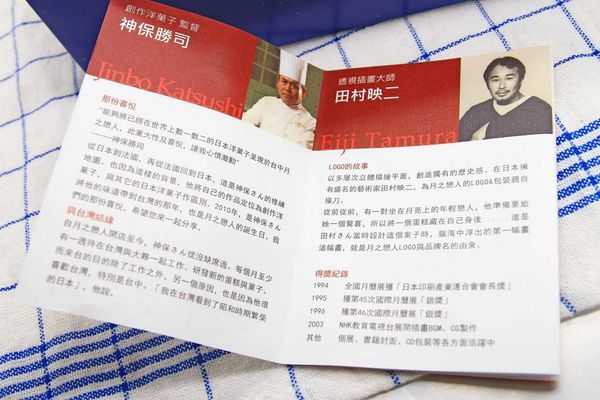 創作洋菓子 監督
神保勝司
Jinbo Katsushi
那份喜悅
"能夠將已經在世界上數一數二的日本洋菓子呈現於台中月
之戀人,此重大性及喜悅,讓我心情激動"
——神保勝司
從日本到法國,再從法國回到日本,這是神保さん的修練
地圖,也因為這樣的背景,他將自己的作品定位為創作洋
菓子,與其它的日本洋菓子作區別。2010年,是神保さん
將他的味道帶到台灣的那年,也是月之戀人的誕生日。我
們的那份喜悅,希望您來一起分享。
與台灣結緣
自月之戀人開店至今,神保さん從沒缺席過。每個月至少
有一週待在台灣與大夥一起工作,研發新的蛋糕與菓子。
而來台的目的除了工作之外,另一個原因,也是因為他很
喜歡台灣,特別是台中。「我在台灣看到了昭和時期繁榮
的日本」,他說。
透視插畫大師
田村映二
Eiji Tamura
LOGO的故事
以多層次立體描繪平面,創造獨有的歷史感。在日本擁
有盛名的藝術家田村映二,為月之戀人的LOGO&包裝親自
操刀。
從前從前,有一對坐在月亮上的年輕戀人,他準備要給
她一個驚喜,所以將一個蛋糕藏在自己身後......這是
田村さん當時設計這個案子時,腦海中浮出的第一幅畫
這幅畫,就是月之戀人LOGO與品牌名的由來。
得獎紀錄
1994 全國月曆展獲「日本印刷產業連合會會長獎」
1995 獲第45次國際月曆展「銀獎」
1996 獲第46次國際月曆展「銀獎」
2003 NHK教育電視台展開插畫BGM、CG製作
其他 個展、書籍封面、CD包裝等各方面活躍中